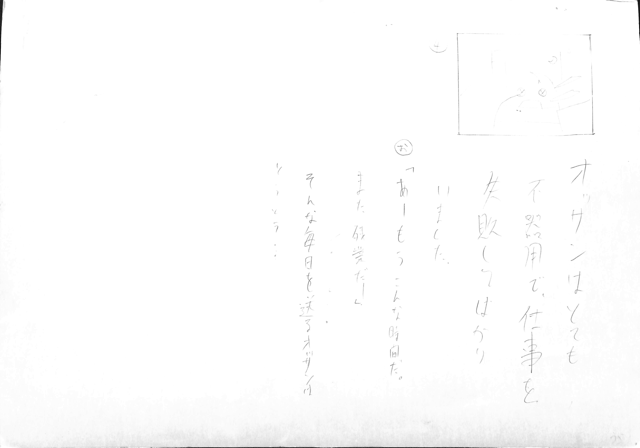 オッサンはとても
不器用で、仕事を
失敗してばかり
いました。
お
「あーもうこんな時間だ。
また残業だー」
そんな毎日を送るオッサンは